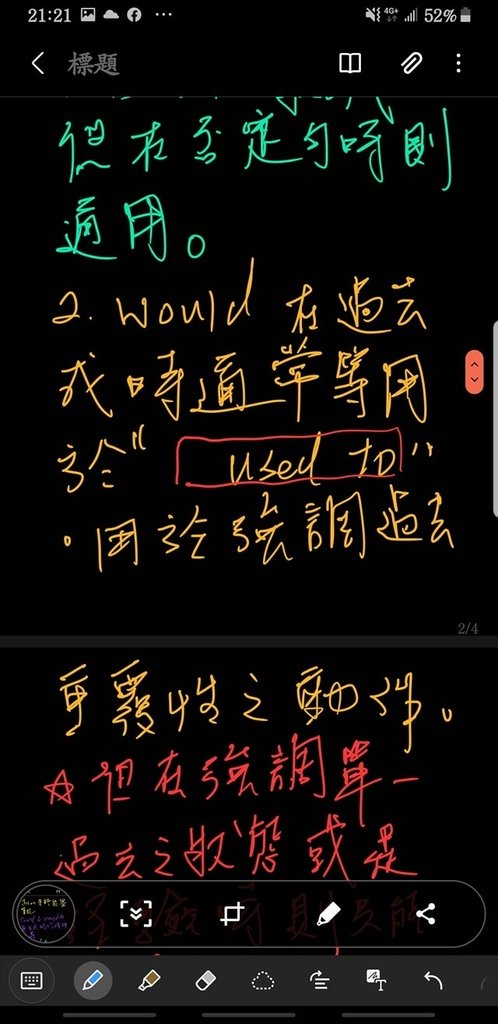 21:21
4G+
52%
標題
但在否定句時則
適用。
2. would 在過去
式時通常等用
於“ used to”
·用於強調過去
2/4
重覆性之動作。
☆但在強調單一
過去之狀態或是
經驗時則只能